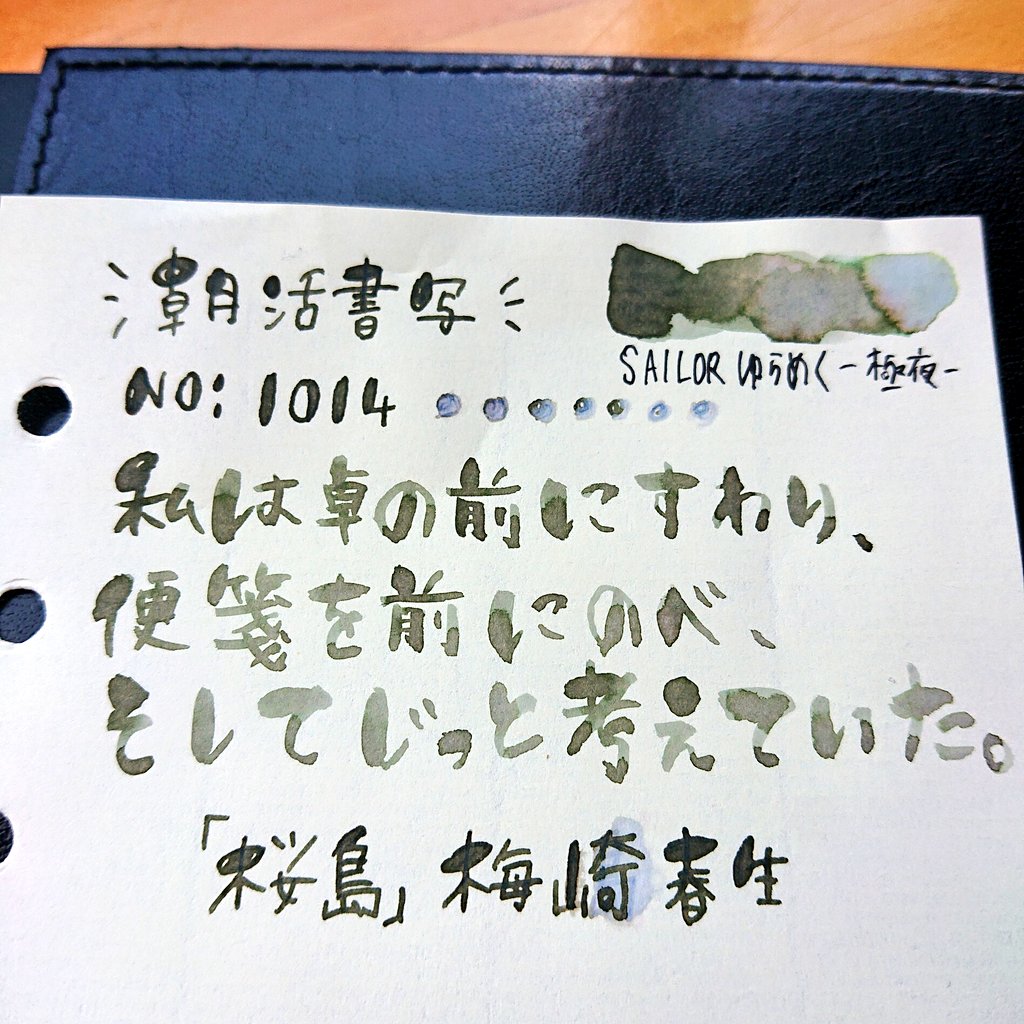 朝活書写
SAILOR ゆらめく -極夜-
NO: 1014
私は卓の前にすわり、
便箋を前にのべ、
そしてじっと考えていた。
「桜島」梅崎春生